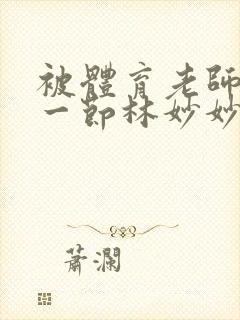 被體育老師
一節林妙妙
蕭瀾